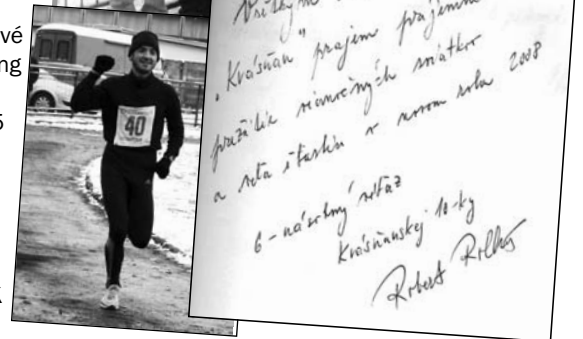 vé
ng
5
k
40
Všetkým
„Krásňan" prajem príjemné
prežitie vianočných sviatkov
a veľa šťastia v novom roku 2008
6-násobný víťaz
Krásňanskej 10-ky
Robert